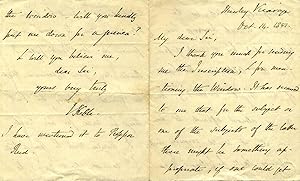 Hursley Vicarage
Oct. 14.
My dear Sir,
I thank you much for sending
me the Inscription, & for men-
tioning the Window. It has occurred
to me that for the subject or
one of the subjects of the latter
there might be something ap-
propriate, if one could get
the Window - will you kindly
put me down for a guinea?
I will you believe me,
dear Sir,
yours very truly,
J Keble.
I have mentioned it to